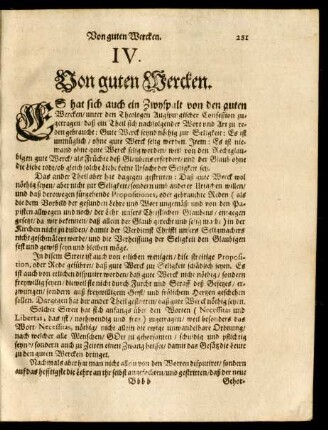 Von guten Wercken. 221
IV.
Von guten Wercken.
ES hat sich auch ein Zwyspalt von den guten
Wercken/unter den Theologen Augspurgischer Confession zu-
getragen/ daß ein Theil sich nachfolgender Wort und Art zu re-
den gebraucht: Gute Werck seynd nöhtig zur Seligkeit: Es ist
unmüglich/ ohne gute Werck selig werden. Item: Es ist nie-
mand ohne gute Werck selig worden/ weil von den Rechtglau-
bigen gute Werck als Früchte deß Glaubens erfordert/ und der Glaub ohne
die Liebe todt/ob gleich solche Liebe keine Ursache der Seligkeit sey.
Das ander Theil aber hat dagegen gestritten: Daß gute Werck wol
nöhtig seyen/ aber nicht zur Seligkeit/ sondern umb anderer Ursachen willen/
und daß derowegen Propositiones, oder gebrauchte Reden (als
die dem Vorbild der gesunden Lehre und Wort ungemäß/ und von den Pa-
pisten allwegen und noch/ der Lehr unsers Christlichen Glaubens/ entgegen
gesetzt/ da wir bekennen/ daß allein der Glaub gerecht und selig mache) in der
Kirchen nicht zu dulden/ damit der Verdienst Christi unsers Seligmachers
nicht geschmälert werde/ und die Verheissung der Seligkeit den Glaubigen
fest und gewiß seyn und bleiben möge.
In diesem Streit ist auch von etlichen wenigen/ diese streitige Proposi-
tion, oder Rede geführet/ daß gute Werck zur Seligkeit schädlich seyen. Es
ist auch von etlichen disputiret worden/ daß gute Werck nicht nöhtig/ sondern
freywillig seyen/ dieweil sie nicht durch Furcht und Straff deß Gesetzes/ er-
zwungen/ sondern auß freywilligem Geist/ und frölichem Hertzen geschehen
sollen. Dargegen hat der ander Theil gestritten/ daß gute Werck nöhtig seyen.
Solcher Streit hat sich anfangs über den Worten (Necessitas und
Libertas, das ist/ nohtwendig und frey) zugetragen/ weil besonders das
Wort Necessitas, nöhtig/ nicht allein die ewige unwandelbare Ordnung/
nach welcher alle Menschen/ GOtt zu gehorsamen/ schuldig und pflichtig
seyn/ sondern auch zu Zeiten einen Zwang heisset/ damit das Gesetz die Leute
zu den guten Wercken dringet.
Nachmals aber hat man nicht allein von den Worten disputiret/ sondern
auf das hefftigste die Lehre an ihr selbst angefochten/ und gestritten/ daß der neue
Bbbb Gehor-